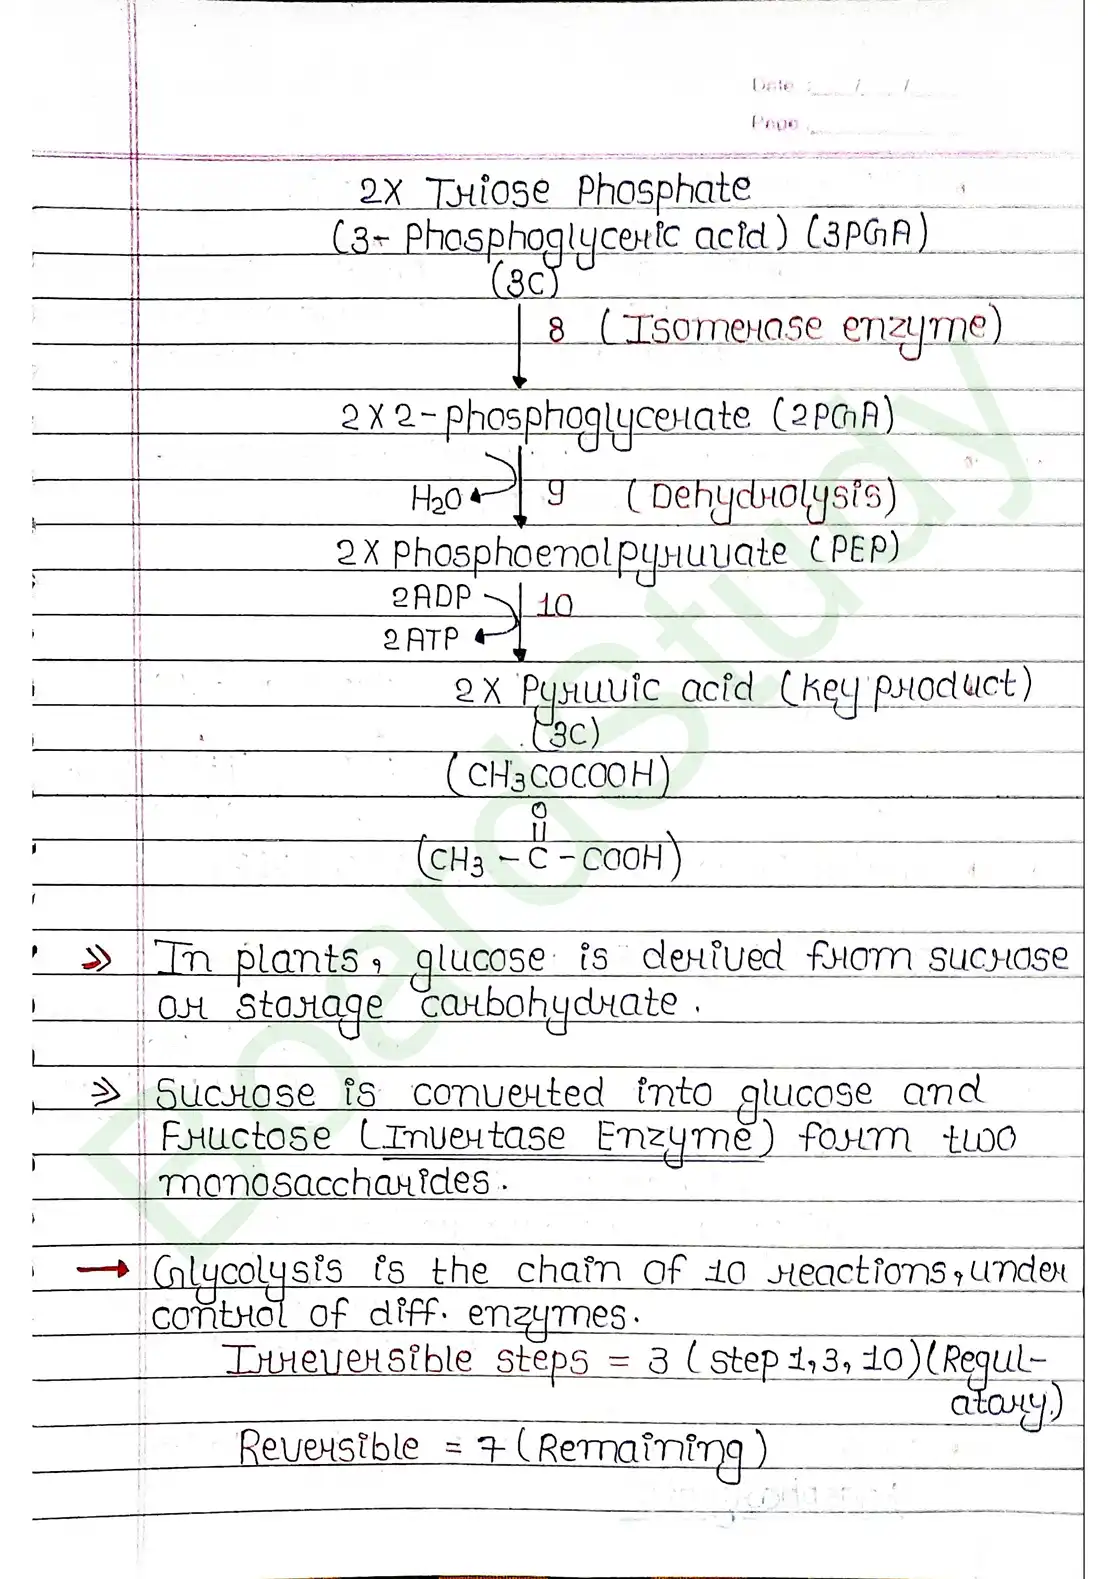 Date : __/__/__
Page
2X Triose Phosphate
(3- Phosphoglyceric acid) (3PGA)
(3C)
8 (Isomerase enzyme)
2X2-phosphoglycerate (2PGA)
H2O 9 (Dehydrolysis)
2X Phosphoenolpyruvate (PEP)
2ADP 10
2ATP
2X Pyruvic acid (Key product)
(3C)
(CH3COCOOH)
O
(CH3 - C - COOH)
>> In plants, glucose is derived from sucrose
or storage carbohydrate.
>> Sucrose is converted into glucose and
Fructose (Invertase Enzyme) form two
monosaccharides.
→ Glycolysis is the chain of 10 reactions, under
control of diff. enzymes.
Irreversible steps = 3 (step 1, 3, 10) (Regul-
atory.)
Reversible = 7 (Remaining)
BoardStudy